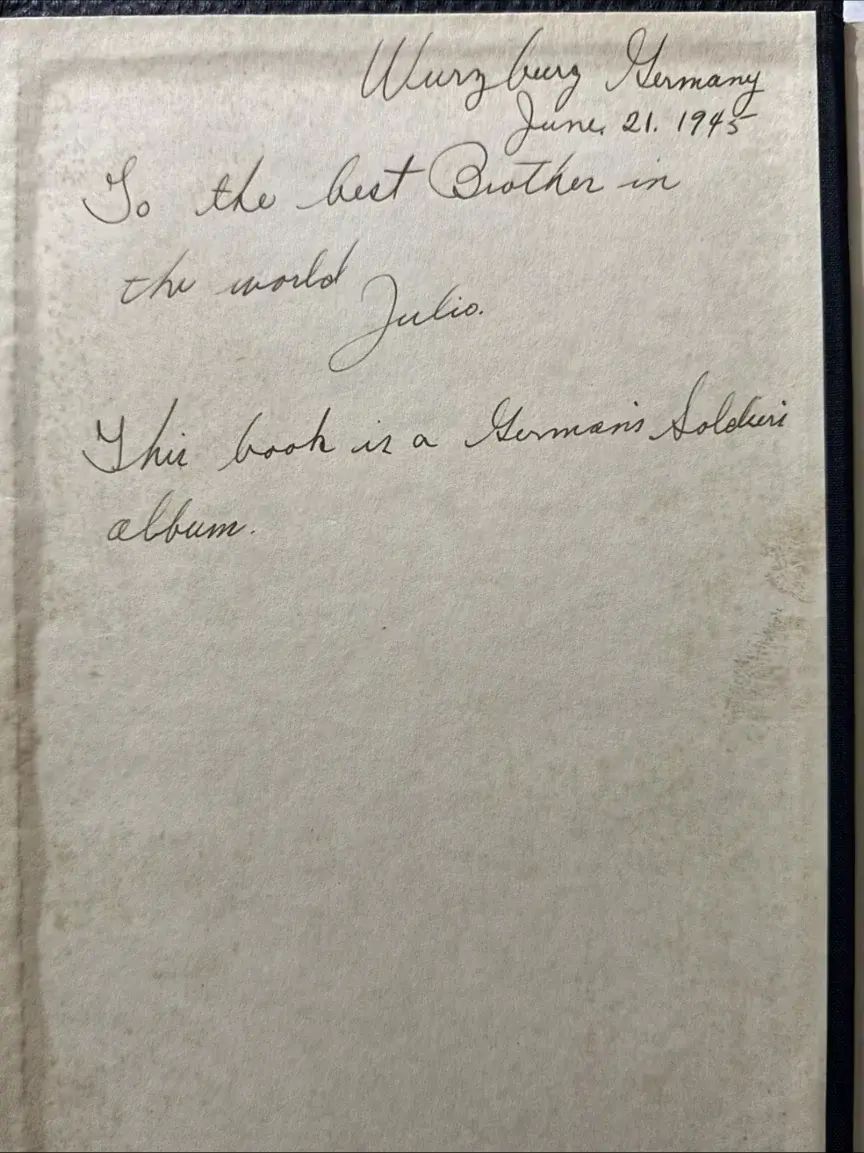 Wurzburg Germany
June. 21. 1945
To the best Brother in
the world
Julio.
This book is a German's Soldier's
album.